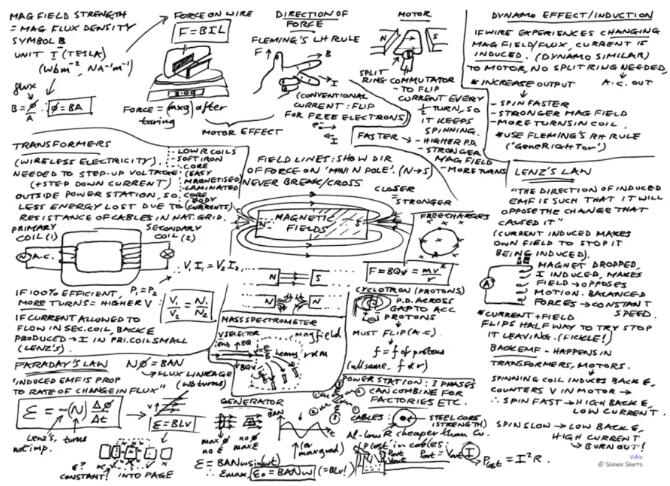 MAG FIELD STRENGTH
= MAG FLUX DENSITY
SYMBOL B
UNIT T (TESLA)
(Wbm⁻², NA⁻¹m⁻¹)
flux
B = Φ/A ∴ Φ = BA
FORCE ON WIRE
F = BIL
FORCE = (m×g) after
taring
MOTOR EFFECT
DIRECTION OF
FORCE
FLEMING'S LH RULE
F
B
I
(CONVENTIONAL
CURRENT: FLIP
FOR FREE ELECTRONS)
MOTOR
N
S
SPLIT
RING COMMUTATOR
- TO FLIP
CURRENT EVERY
½ TURN, SO
IT KEEPS
SPINNING.
FASTER → - HIGHER P.D.
- STRONGER
MAG FIELD
- MORE TURNS
DYNAMO EFFECT/INDUCTION
IF WIRE EXPERIENCES CHANGING
MAG FIELD/FLUX, CURRENT IS
INDUCED. (DYNAMO SIMILAR)
TO MOTOR, NO SPLIT RING NEEDED,
A.C. OUT
* INCREASE OUTPUT
- SPIN FASTER
- STRONGER MAG FIELD
- MORE TURNS IN COIL.
* USE FLEMING'S RH RULE
('GeneRIGHTor')
TRANSFORMERS
(WIRELESS ELECTRICITY)
NEEDED TO STEP-UP VOLTAGE
(+ STEP DOWN CURRENT)
OUTSIDE POWER STATION, SO
LESS ENERGY LOST DUE TO
RESISTANCE OF CABLES IN NAT. GRID.
- LOW R COILS
- SOFT IRON
CORE
(EASY
MAGNETISED)
- LAMINATED
CORE
CURRENTS)
PRIMARY
COIL (1)
SECONDARY
COIL (2)
A.C.
V₁I₁ = V₂I₂
IF 100% EFFICIENT, P₁ = P₂
MORE TURNS = HIGHER V
V₁/V₂ = N₁/N₂
IF CURRENT ALLOWED TO
FLOW IN SEC. COIL, BACK E
PRODUCED → I IN PRI. COIL SMALL
(LENZ'S).
FIELD LINES: SHOW DIR
OF FORCE ON 'MINI N POLE'. (N→S)
NEVER BREAK/CROSS
CLOSER
= STRONGER
N
MAGNETIC
FIELDS
S
N
S
FREE CHARGES
F = BQv = mv²/r
CYCLOTRON (PROTONS)
P.D. ACROSS
GAP TO ACC
PROTONS
MUST FLIP (A.C.)
f = f of protons
(all same, f ≠ r)
LENZ'S LAW
"THE DIRECTION OF INDUCED
EMF IS SUCH THAT IT WILL
OPPOSE THE CHANGE THAT
CAUSED IT"
(CURRENT INDUCED MAKES
OWN FIELD TO STOP IT
BEING INDUCED).
A
MAGNET DROPPED,
I INDUCED, MAKES
FIELD → OPPOSES
MOTION. BALANCED
FORCES → CONSTANT
SPEED.
* CURRENT + FIELD
FLIPS HALF WAY TO TRY STOP
IT LEAVING. (FICKLE!)
BACK EMF - HAPPENS IN
TRANSFORMERS, MOTORS.
SPINNING COIL INDUCES BACK E,
COUNTERS V IN MOTOR →
∴ SPIN FAST → HIGH BACK E,
LOW CURRENT.
SPIN SLOW → LOW BACK E,
HIGH CURRENT
→ BURN OUT!
MASS SPECTROMETER
V SELECTOR
mag field
FARADAY'S LAW
NΦ = BAN
FLUX LINKAGE
(Wb turns)
"INDUCED EMF IS PROP
TO RATE OF CHANGE IN FLUX"
ε = -N ΔΦ/Δt
Lenz's,
not imp.
turns
ε = BLV
ε?
CONSTANT!
INTO PAGE
GENERATOR
BAN
maxΦ
no E
noΦ
max E
(or max grad)
ε = BANω sin ωt
εmax
ε₀ = BANω
(= BLv!)
POWER STATION: 3 PHASES
CAN COMBINE FOR
FACTORIES ETC.
CABLES:
STEEL CORE
(STRENGTH)
Al - low R cheaper than Cu.
* P lost in cables:
Pout
Vout
Pout = Vout I
Plost = I²R.
Video
© Science Shorts